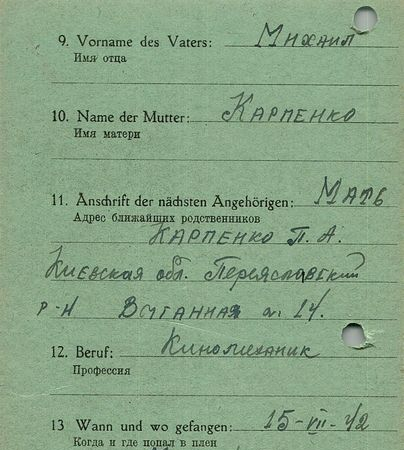 9. Vorname des Vaters: Михаил
Имя отца
10. Name der Mutter: Карпенко
Имя матери
11. Anschrift der nächsten Angehörigen: Мать
Адрес ближайших родственников
Карпенко П. А.
Киевская обл. Переяславский
р-н Выганная 14.
12. Beruf: Киномеханик
Профессия
13 Wann und wo gefangen: 15-VII-42
Когда и где попал в плен